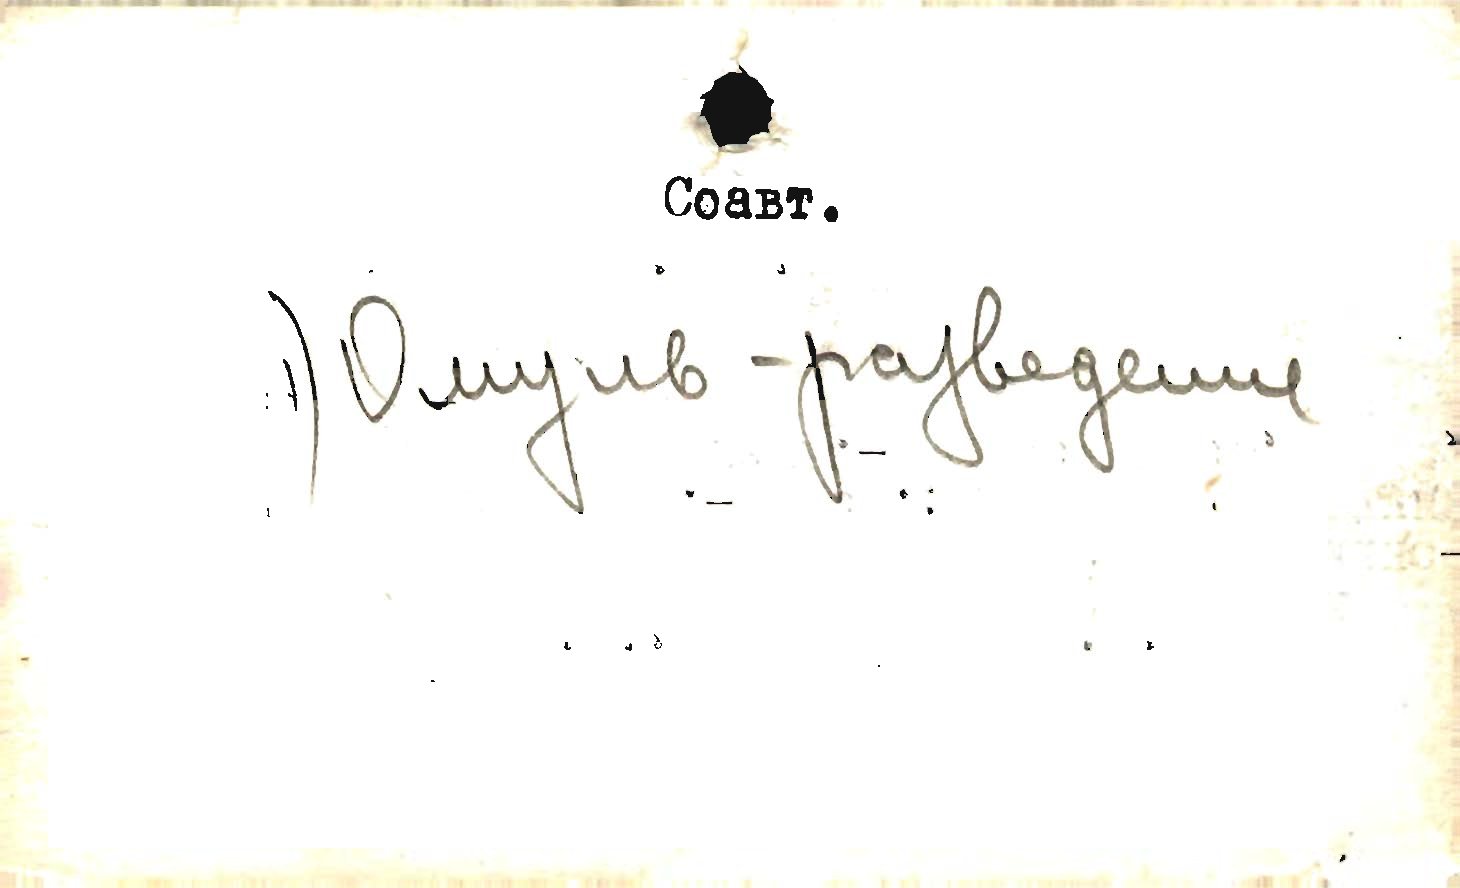 Соавт.
1) Омуль - разведение